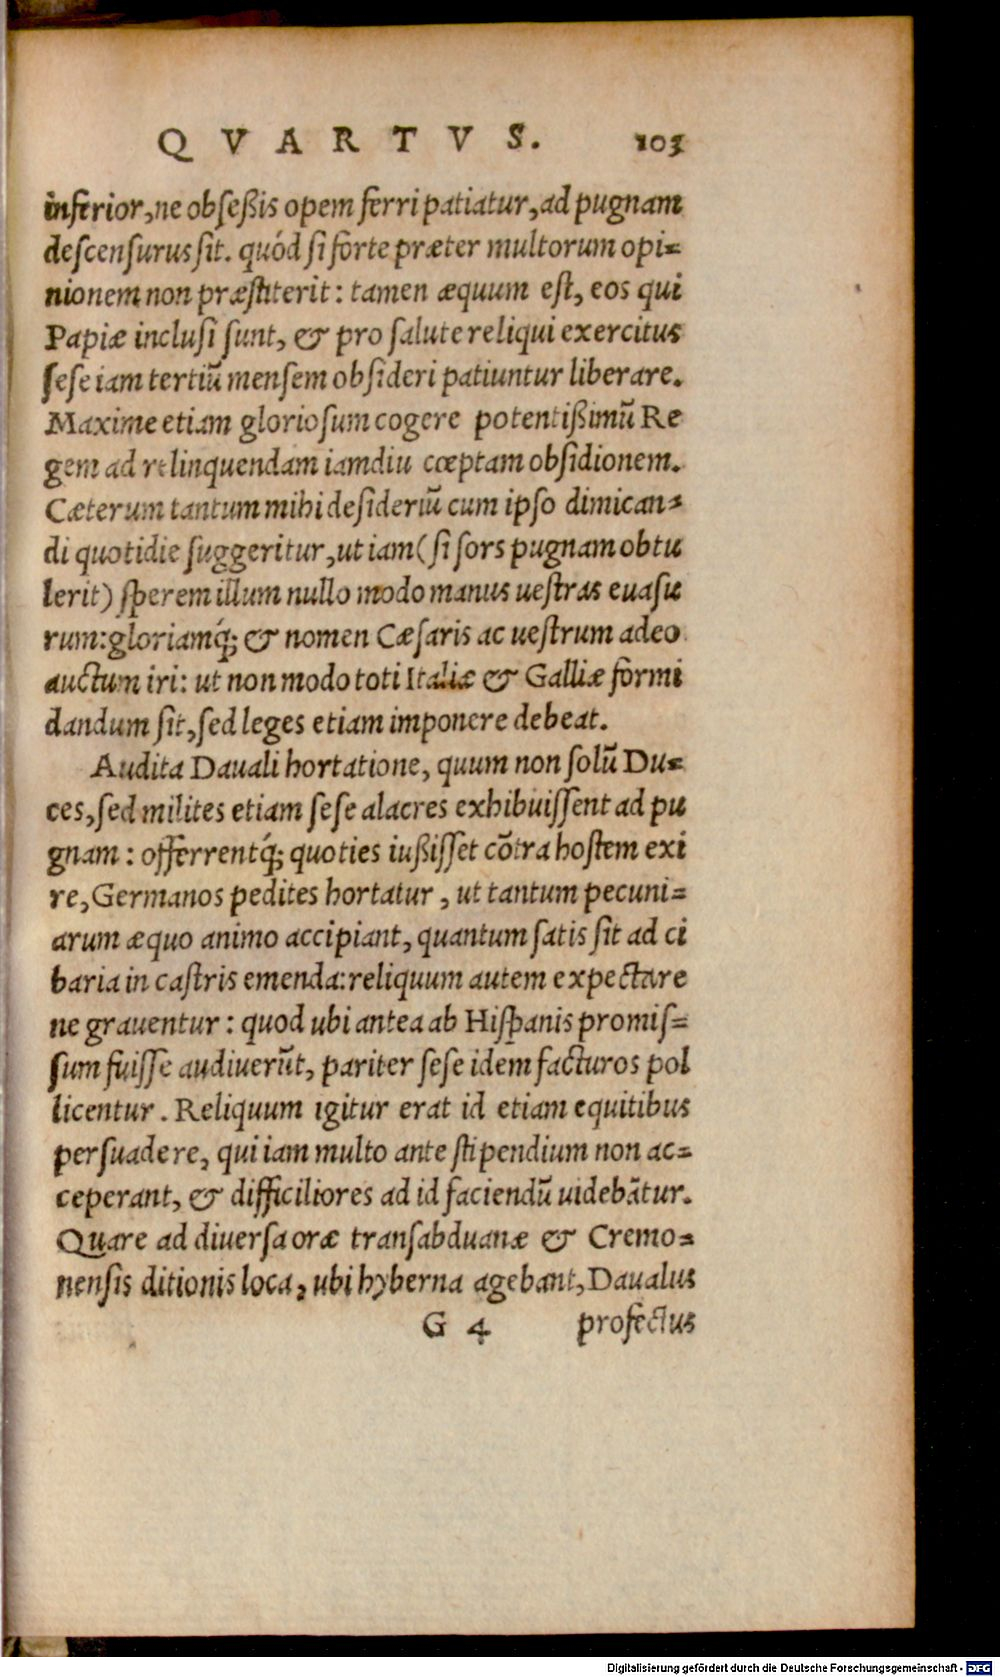 QVARTVS. 103
inferior, ne obseßis opem ferri patiatur, ad pugnam
descensurus sit. quód si forte præter multorum opi=
nionem non præstiterit: tamen æquum est, eos qui
Papiæ inclusi sunt, & pro salute reliqui exercitus
sese iam tertiũ mensem obsideri patiuntur liberare.
Maxime etiam gloriosum cogere potentißimũ Re
gem ad relinquendam iamdiu cœptam obsidionem.
Cæterum tantum mihi desideriũ cum ipso dimican=
di quotidie suggeritur, ut iam (si sors pugnam obtu
lerit) sperem illum nullo modo manus uestras euasu
rum: gloriamq́; & nomen Cæsaris ac uestrum adeo
auctum iri: ut non modo toti Italiæ & Galliæ formi
dandum sit, sed leges etiam imponere debeat.
Audita Dauali hortatione, quum non solũ Du=
ces, sed milites etiam sese alacres exhibuissent ad pu
gnam: offerrentq́; quoties iußisset cõtra hostem exi
re, Germanos pedites hortatur, ut tantum pecuni=
arum æquo animo accipiant, quantum satis sit ad ci
baria in castris emenda: reliquum autem expectare
ne grauentur: quod ubi antea ab Hispanis promis=
sum fuisse audiuerũt, pariter sese idem facturos pol
licentur. Reliquum igitur erat id etiam equitibus
persuadere, qui iam multo ante stipendium non ac=
ceperant, & difficiliores ad id faciendũ uidebãtur.
Quare ad diuersa oræ transabduanæ & Cremo=
nensis ditionis loca, ubi hyberna agebant, Daualus
G 4 profectus
Digitalisierung gefördert durch die Deutsche Forschungsgemeinschaft - DFG